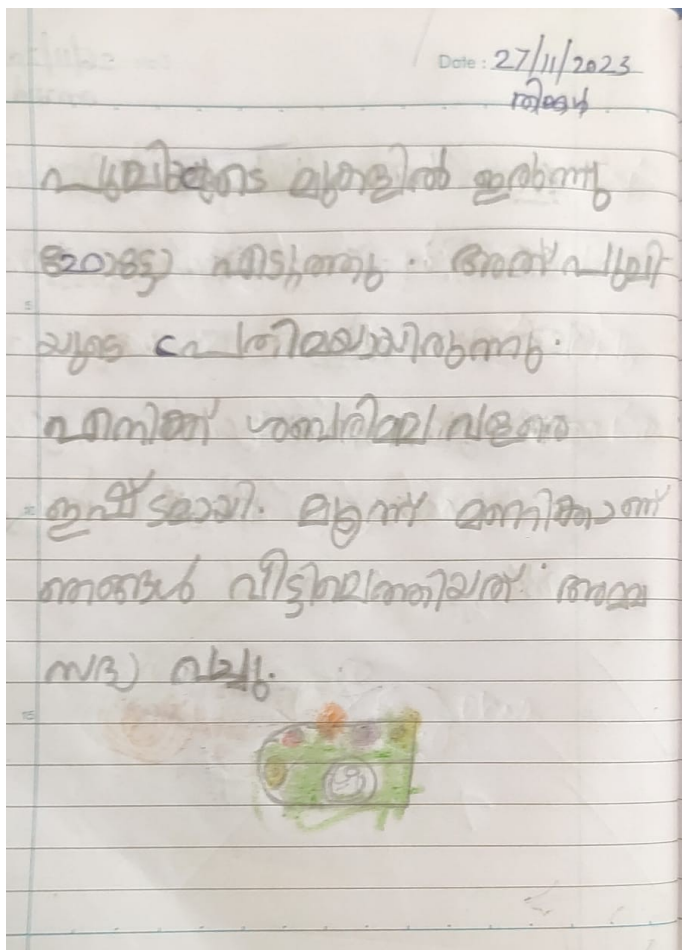 Date : 27/11/2023
തിങ്കൾ
പുലിയുടെ മുകളിൽ ഇരുന്നു
ഫോട്ടോ എടുത്തു . അത് പുലി
യുടെ പ്രതിമയായിരുന്നു.
എനിക്ക് ശബരിമല വളരെ
ഇഷ്ടമായി. മൂന്ന് മണിക്കാണ്
ഞങ്ങൾ വീട്ടിലെത്തിയത് . അമ്മ
സദ്യ വച്ചു.